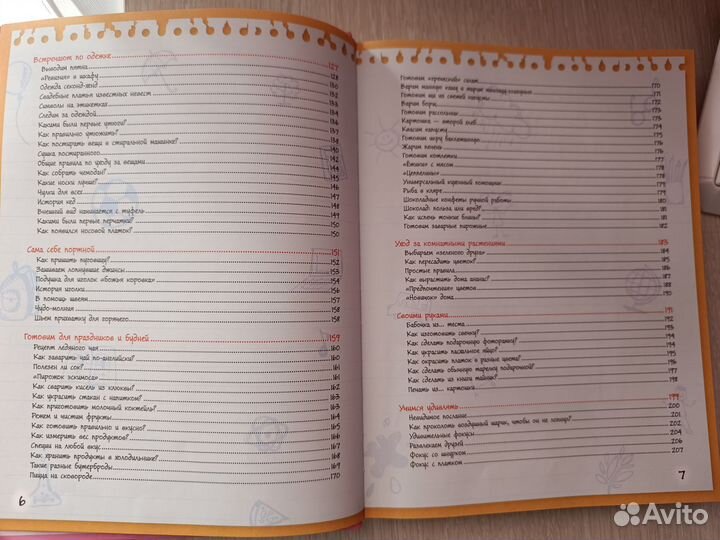 Встречают по одежке 127
Выводим пятна 128
«Ревизия» в шкафу 128
Одежда секонд-хенд 130
Свадебные платья известных невест 132
Символы на этикетках 133
Следим за одеждой 134
Какими были первые утюги? 136
Как правильно утюжить? 137
Как постирать вещи в стиральной машинке? 138
Сушка постиранного 140
Общие правила по уходу за вещами 142
Как собрать чемодан? 144
Какие носки лучше? 145
Чулки для всех 146
История кед 147
Внешний вид начинается с туфель 148
Какими были первые перчатки? 149
Как появился носовой платок? 150
Сама себе портной 151
Как пришить пуговицу? 152
Зашиваем лопнувшие джинсы 153
Подушка для иголок «божья коровка» 154
История иголки 156
В помощь швеям 157
Чудо-молния 158
Шьем прихватку для горячего 158
Готовим для праздников и будней 159
Рецепт ледяного чая 160
Как заварить чай по-английски? 160
Полезен ли сок? 161
«Пирожок эскимоса» 161
Как сварить кисель из клюквы? 162
Как украсить стакан с напитком? 163
Как приготовить молочный коктейль? 163
Режем и чистим фрукты 164
Как готовить правильно и вкусно? 165
Как измерить вес продуктов? 166
Специи на любой вкус 167
Как хранить продукты в холодильнике? 168
Такие разные бутерброды 169
Пицца на сковороде 170
6
Готовим «греческий» салат 170
Варим 171
Готовим щи из свежей капусты 172
Варим борщ 172
Готовим рассольник 173
Картошка — второй хлеб 174
Квасим капусту 175
Готовим икру баклажанную 176
Жарим печень 176
Готовим котлеты 177
«Ежики» с мясом 178
«Цеппелины» 178
Универсальный кухонный помощник 179
Рыба в кляре 179
Шоколадные конфеты ручной работы 180
Шоколад: польза или вред? 181
Как испечь тонкие блины? 181
Готовим заварные пирожные 182
Уход за комнатными растениями 183
Выбираем «зеленого друга» 184
Как пересадить цветок? 185
Простые правила 186
Как вырастить дома ананас? 187
«Предпочтения» цветов 189
«Новичок» дома 190
Своими руками 191
Бабочка из... теста 192
Как изготовить свечку? 193
Как сделать подарочную фоторамку? 194
Как украсить пасхальное яйцо? 194
Как окрасить платок в разные цвета? 195
Как сделать обычную тарелку подарочной? 196
Как сделать из книги тайник? 197
Печать из... картошки 198
Учимся удивлять 199
Невидимое послание 200
Как проколоть воздушный шарик, чтобы он не лопнул? 201
Удивительные фокусы 202
Развлекаем друзей 204
Фокус со шнурком 206
Фокус с платком 207
7
Avito